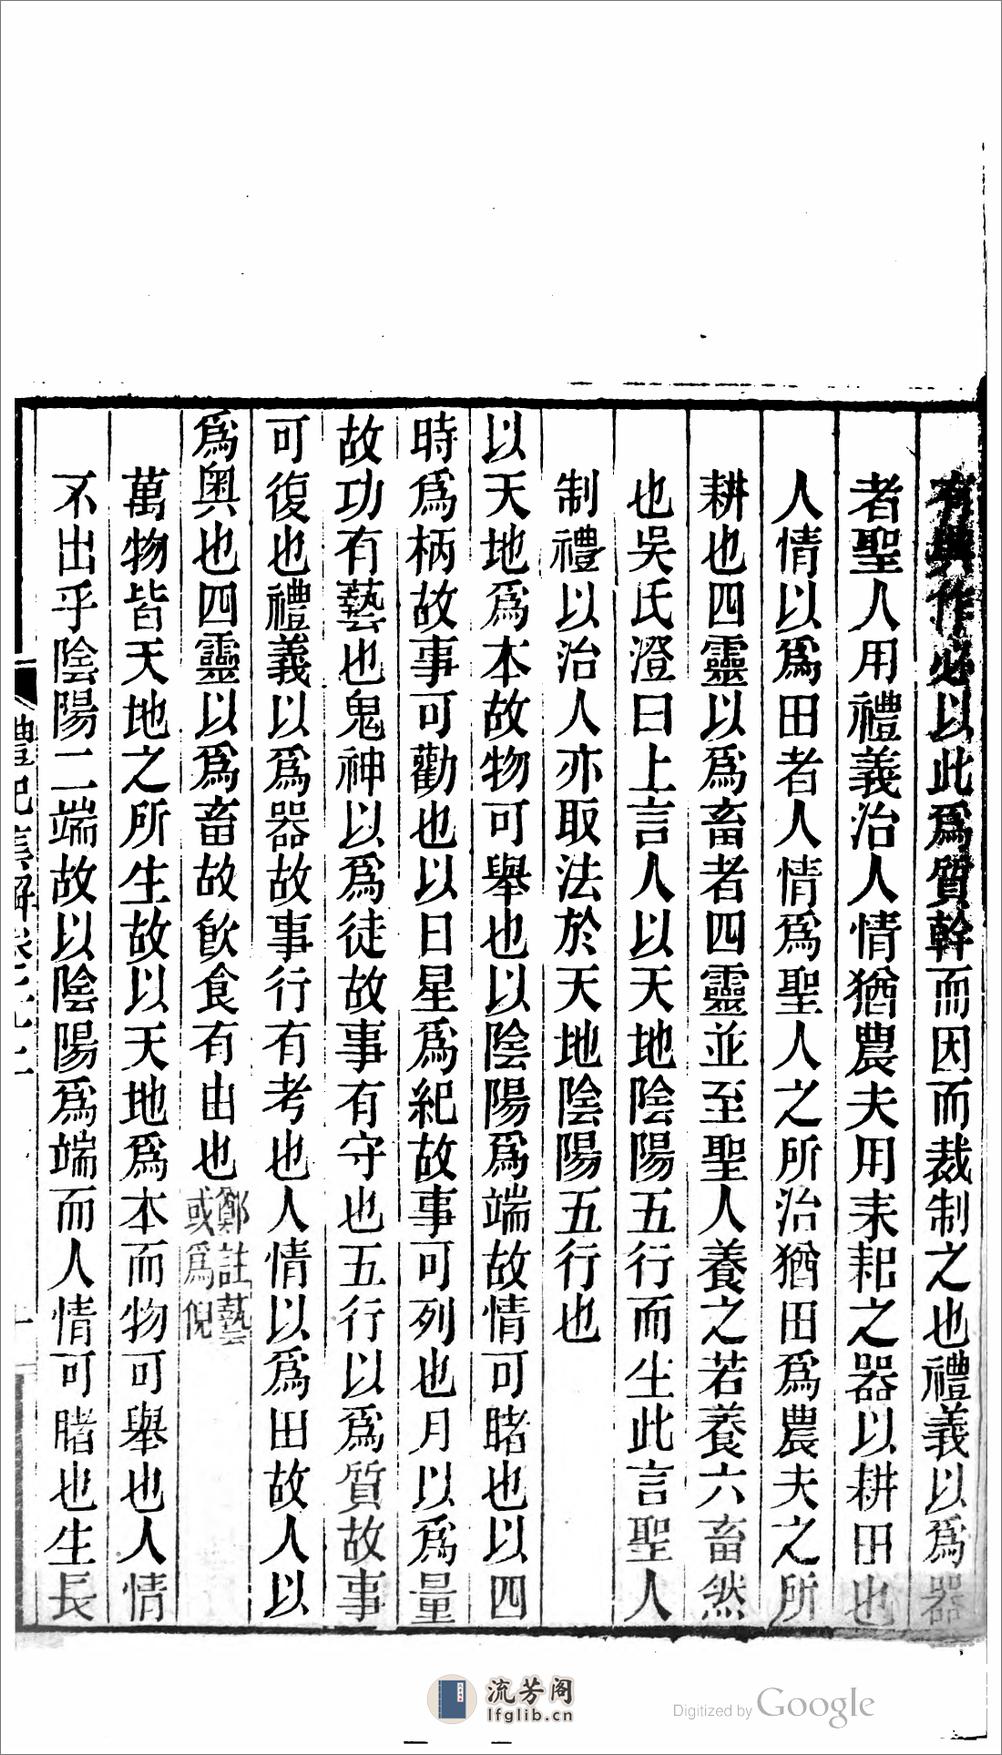 有興作必以此爲質幹而因而裁制之也禮義以爲器
者聖人用禮義治人情猶農夫用耒耜之器以耕田也
人情以爲田者人情爲聖人之所治猶田爲農夫之所
耕也四靈以爲畜者四靈並至聖人養之若養六畜然
也吳氏澄曰上言人以天地陰陽五行而生此言聖人
制禮以治人亦取法於天地陰陽五行也
以天地爲本故物可舉也以陰陽爲端故情可睹也以四
時爲柄故事可勸也以日星爲紀故事可列也月以爲量
故功有藝也鬼神以爲徒故事有守也五行以爲質故事
可復也禮義以爲器故事行有考也人情以爲田故人以
爲奧也四靈以爲畜故飮食有由也鄭註藝
或爲倪
萬物皆天地之所生故以天地爲本而物可舉也人情
不出乎陰陽二端故以陰陽爲端而人情可睹也生長
禮記集解卷二十二
流芳阁
lfglib.cn
Digitized by Google